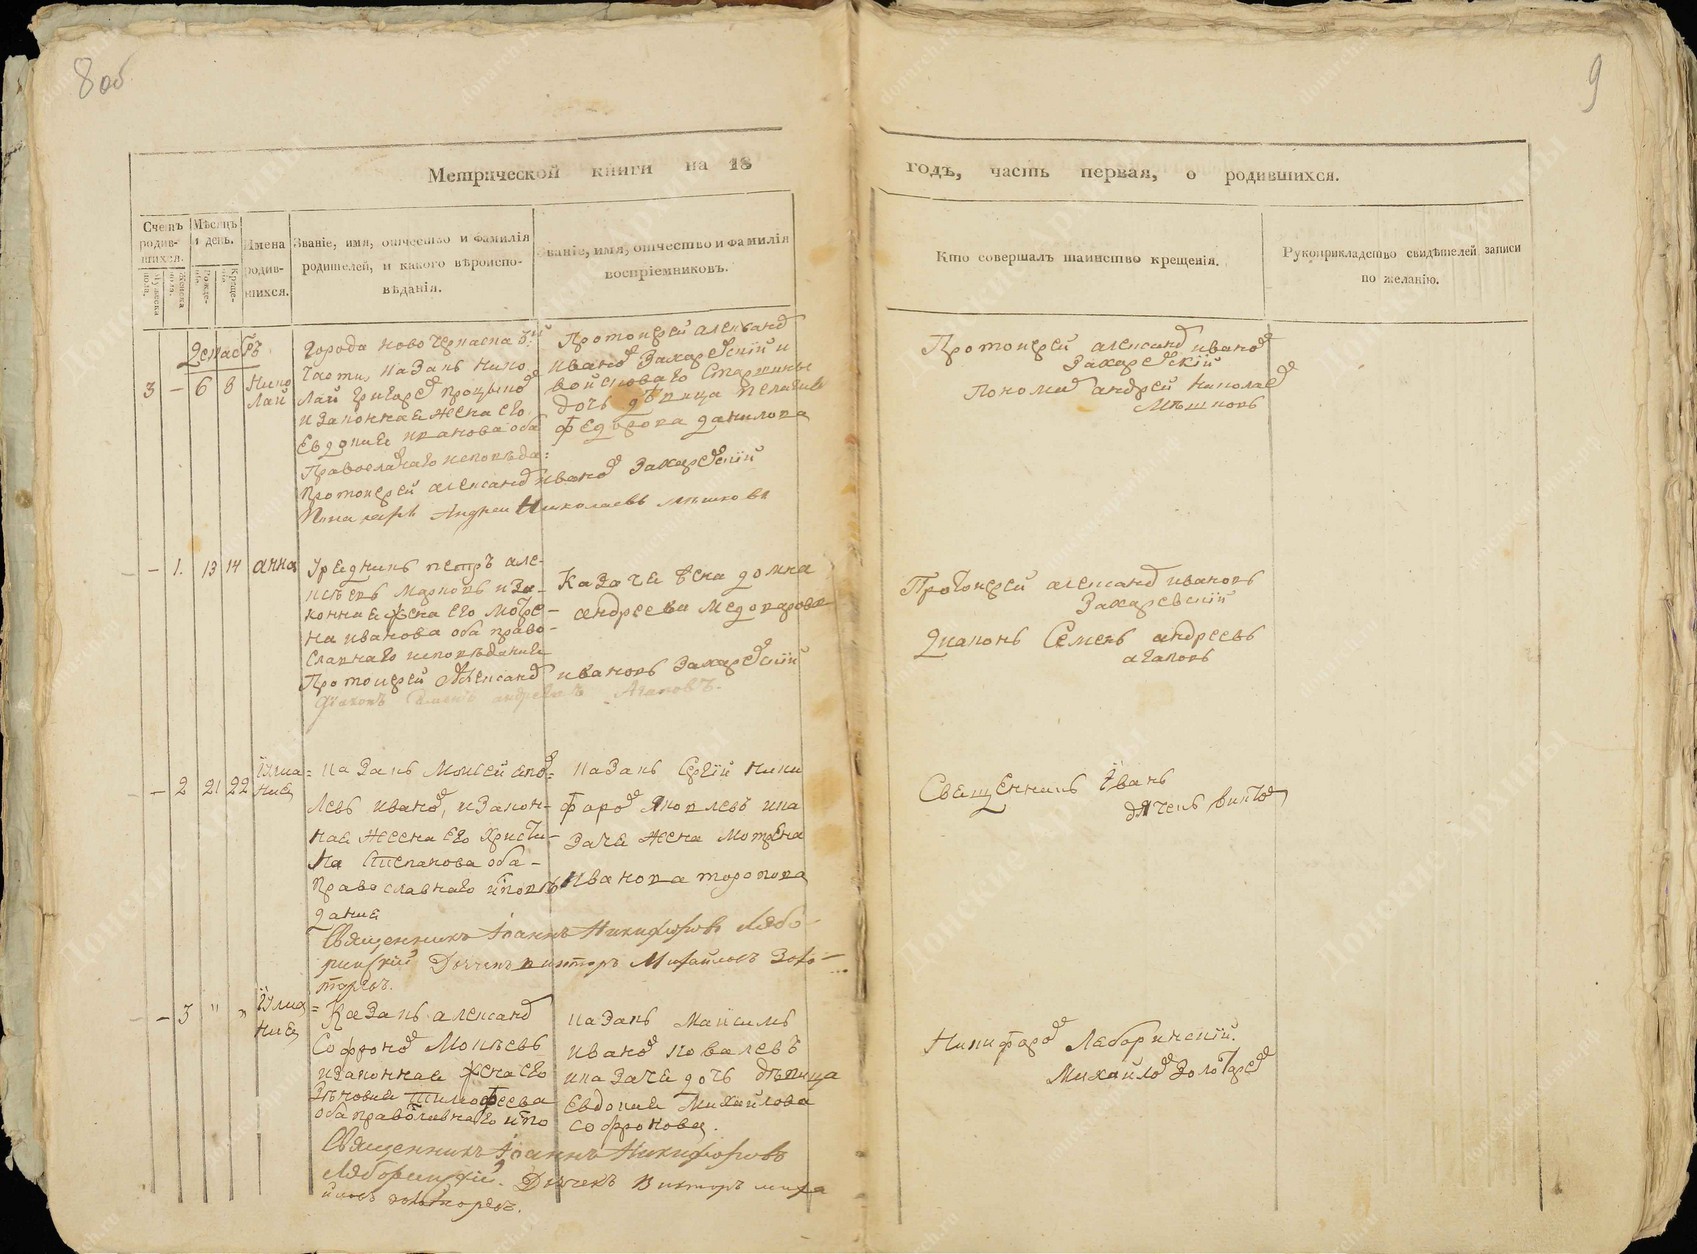 8 об
9
Метрической книги на 18
годъ, часть первая, о родившихся.
Счетъ родив-шихся.
Мѣсяцъ и день.
Имена родив-шихся.
Званіе, имя, отчество и фамилія родителей, и какого вѣроиспо-вѣданія.
Званіе, имя, отчество и фамилія воспріемниковъ.
Кто совершалъ таинство крещенія.
Рукоприкладство свидѣтелей записи по желанію.
Мужеска пола.
Женска пола.
Рожде-нія.
Креще-нія
Декабръ
3 — 6 8
Нико
лай
Города Новочеркаска
части, казакъ Нико
лай Григоре
и законная жена его
Евдокия Иванова оба
Православнаго исповѣда:
Протоиерей Александ Ивано Захаревскїй
Понамарь Андреи Николаевъ Мѣшковъ
Протоиерей Александ
Ивано Захаревскїй и
войсковаго Старшины
дочь дѣвица Пелагия
Федорова Данилова
Протоиерей Александ Ивано
Захаревскїй
Пономи Андрей Николае
Мѣшковъ
— 1. 13 14 Анна
Урядникъ Петръ Але-
ксѣевъ Марковъ и за-
конная жена его Матре-
на Иванова оба право-
славнаго исповѣдания
Протоиерей Александ Ивановъ Захаревскїй
Дьяконъ Семенъ Андреевъ Агаповъ.
Казачя жена Домна
Андреева Медокарова
Протоиерей Александ Ивановъ
Захаревскїй
Диаконъ Семенъ Андреевъ
Агаповъ
— 2 21 22
Їулиа=
ния
казакъ Моисей
левъ Ивано, и закон-
ная жена его Христи-
на Степанова оба-
православнаго исповѣ
дания
Священникъ Іоаннъ Никифоровъ Лябо-
ринскїй Дьячекъ Викторъ Михайловъ Золо-
таревъ.
казакъ Сергїй Ники
форо Яковлевъ и ка
зачя жена Мотрена
Иванова Торопова
Священникъ Їванъ
дячекъ Викто
— 3 " "
Їулиа=
ния
Казакъ Александ
Софроно Мокѣевъ
и законная жена его
Зѣновия Тимофеева
оба православнаго испо
Священникъ Іоаннъ Никифоровъ
Ляборинскїй. Дьячекъ Викторъ Миха
йловъ Золотаревъ.
казакъ Максимъ
Ивано Ковалевъ
и казачя дочь дѣвица
Евдокия Михайлова
Софронова.
Никифоро Ляборинскїй.
Михайло Золотаре